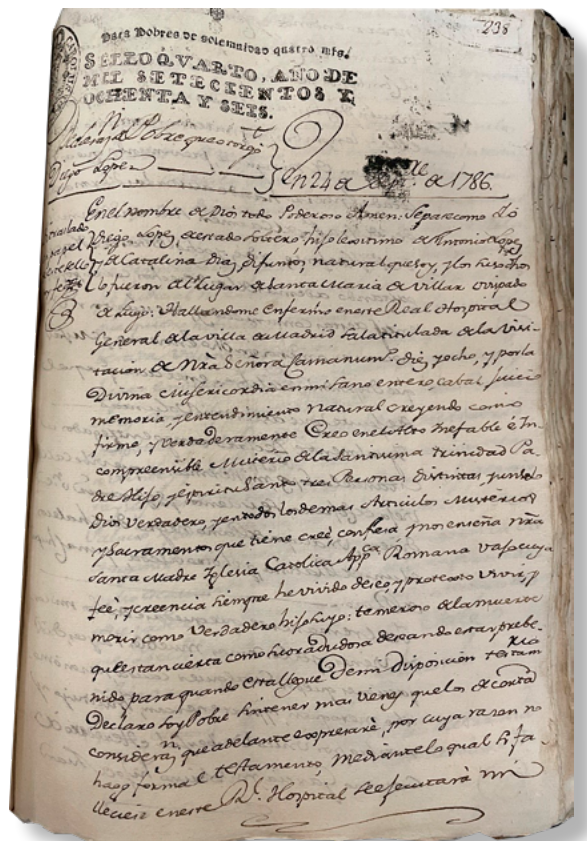 238
Para Pobres de solemnidad quatro mrs.
SELLO QVARTO, AÑO DE
MIL SETECIENTOS Y
OCHENTA Y SEIS.
Declarazn. de Pobre que otorgó
Diego Lopez
En 24 de de 1786.
En el nombre de Dios todo Poderoso Amen: Sepase como Yo
Diego Lopez, de estado soltero hijo lexitimo de Antonio Lopez
y de Catalina Diaz difuntos, natural que soy, y los susodhos
lo fueron del Lugar de Santa Maria de Villar ovispado
de Lugo: Hallandome enfermo en este Real Hospital
General de la villa de Madrid sala titulada de la Visi-
tacion de Nra Señora Cama num.º diez y ocho, y por la
Divina Misericordia en mi sano entero, cabal, juicio
memoria, y entendimiento natural creyendo como
firme, y verdaderamente Creo en el Alto Inefable è In-
compreensible Misterio de la Santisima trinidad Pa-
dre Hijo, y espiritu Santo tres Personas distintas, y un solo
Dios Verdadero, y en todos los demas Articulos Misterios
y Sacramentos que tiene creè, confiesa, y nos enseña nra
Santa Madre Iglesia Catolica Appca. Romana vajo cuya
feè, y creencia siempre he vivido deseo, y protexto vivir, y
morir como Verdadero hijo suyo: temeroso de la muerte
que es tan cierta como su ora dudosa deseando estar prebe-
nido, para quando esta llegue Demi Disposición testam
ria
Declaro soy Pobre sin tener mas venes que los de corta
considerazn. que adelante expresarè, por cuya razon no
hago formal testamento, mediante lo qual si fa-
lleciese en este Rl. Hospital se executarà mi